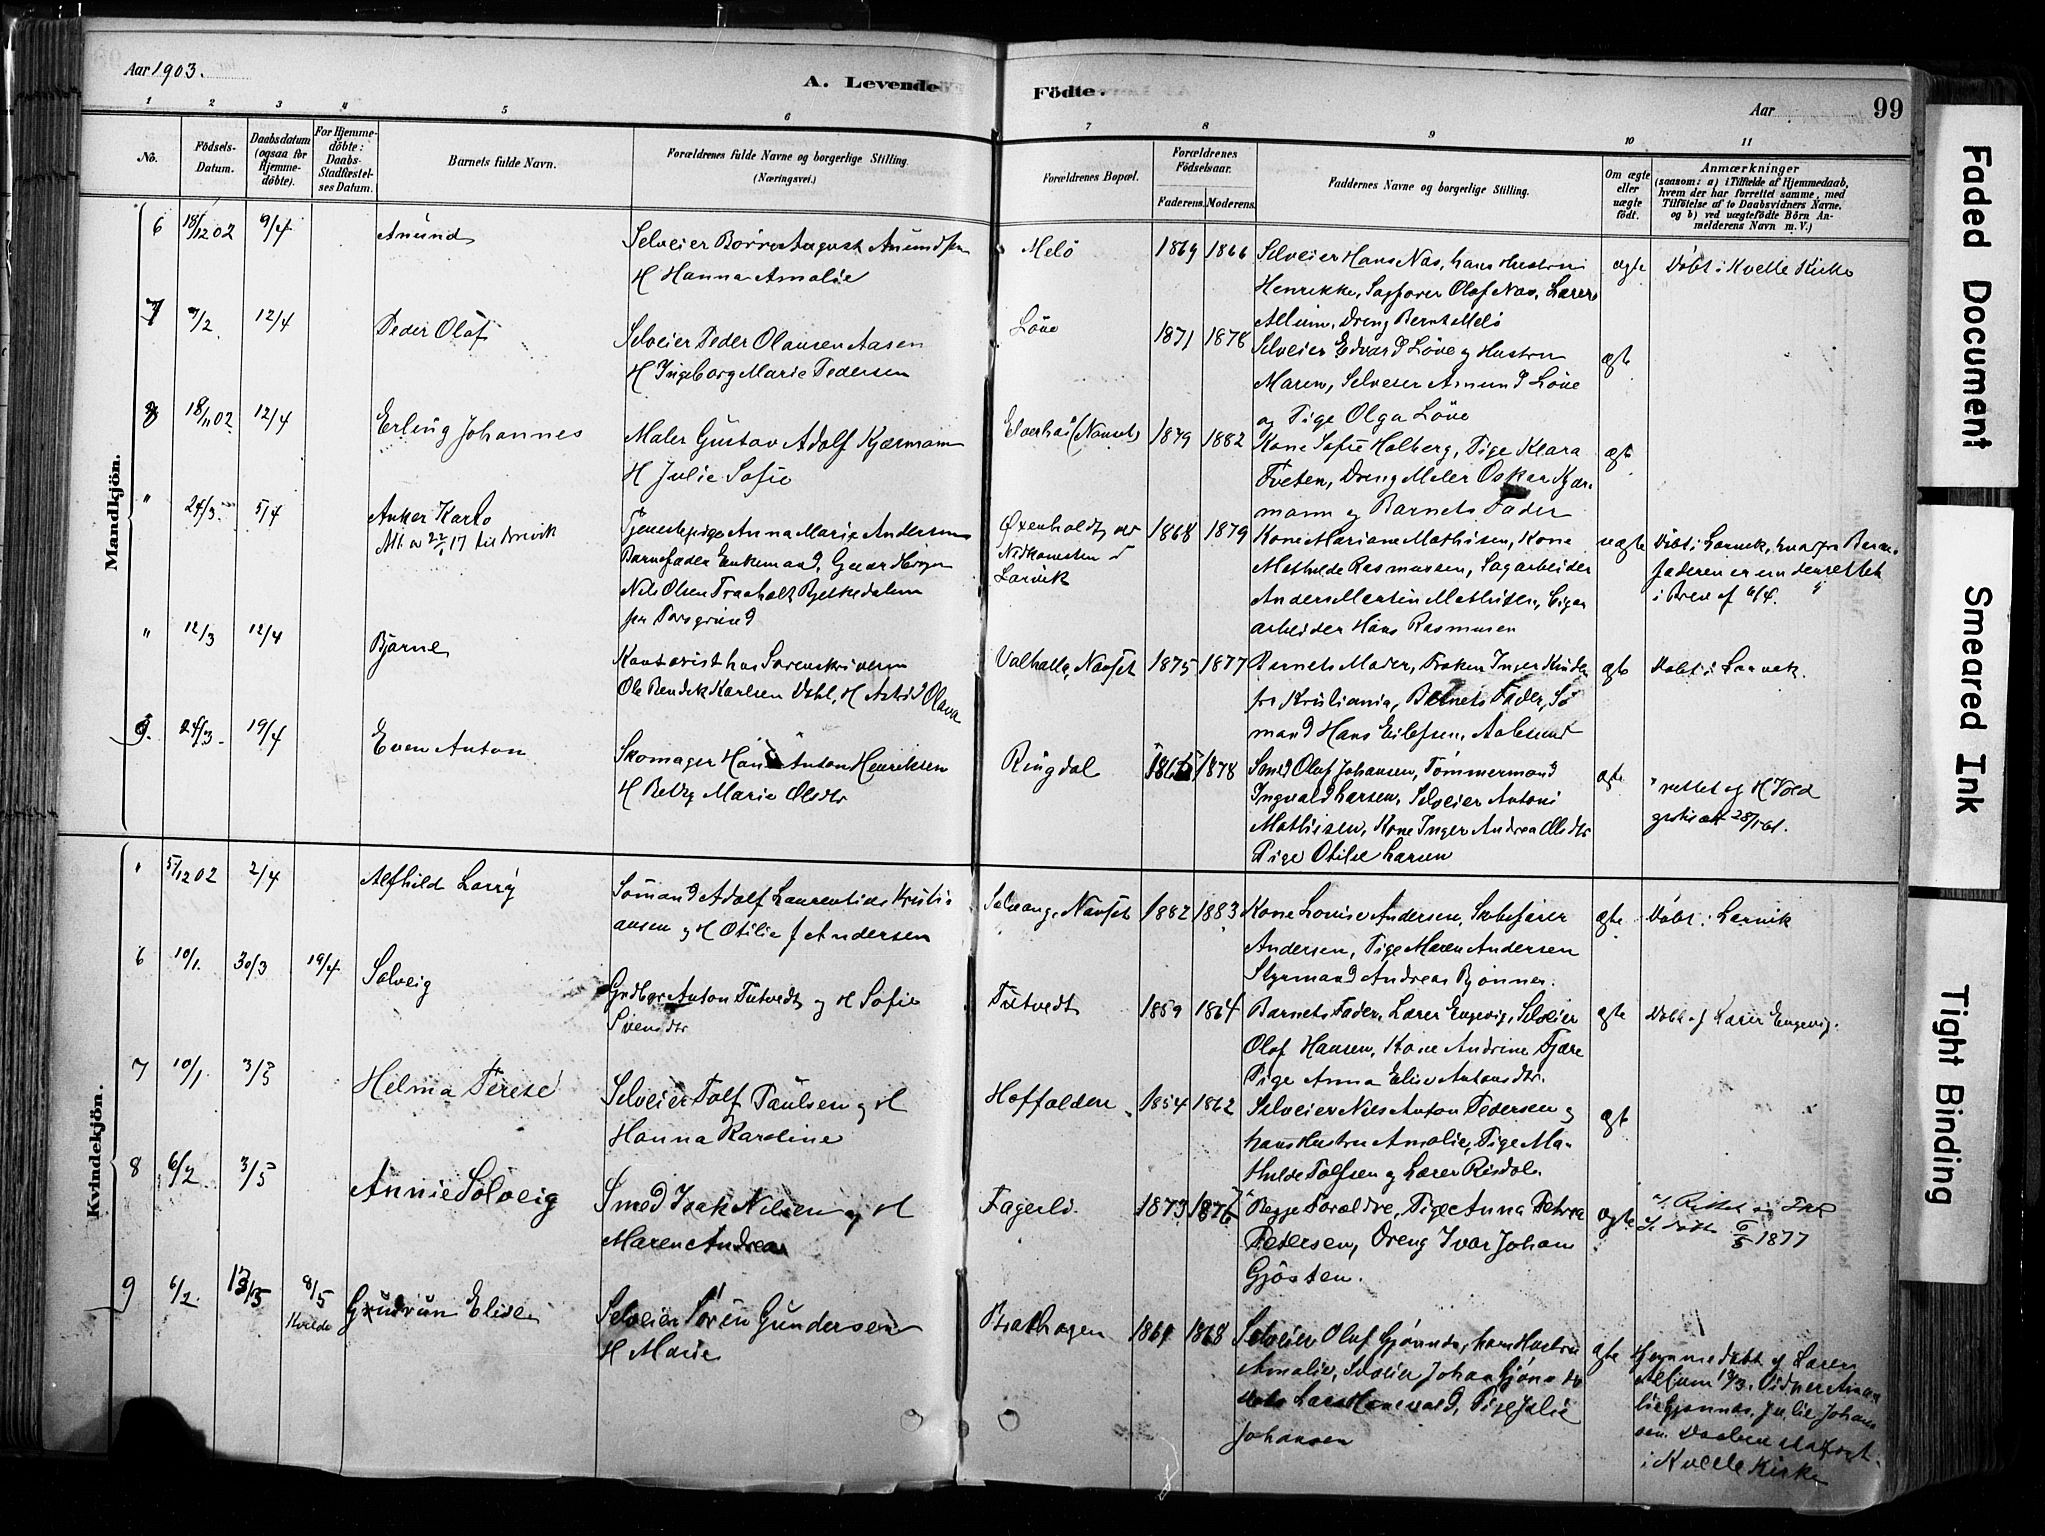 Aar 1903.
A. Levende Födte.
Aar 99
1 2 3 4 5 6 7 8 9 10 11
No.
Födsels-Datum.
Daabsdatum (ogsaa for Hjemmedöbte).
For Hjemmedöbte: Daabs-Stadfæstelses Datum.
Barnets fulde Navn.
Forældrenes fulde Navne og borgerlige Stilling. (Næringsvei.)
Forældrenes Bopæl.
Forældrenes Födselsaar.
Faderens. Moderens.
Faddernes Navne og borgerlige Stilling.
Om ægte eller uægte födt.
Anmærkninger
(saasom: a) i Tilfælde af Hjemmedaab, hvem der har forrettet samme, med Tilföielse af to Daabsvidners Navne, og b) ved uægtefödte Börn Anmelderens Navn m. V.)
Mandkjön.
6 18/12 02 9/4 Anund
Selveier Börre August Anundsen
H Hanna Amalie
Melö 1869 1866
Selveier Hans Nas, hans Hustru
Henrikke, Sagfører Olaf Nas, Lærer
Allum, Dreng Bernt Melö
ægte Döbt i Kvelle Kirke
7 9/2 12/4 Peder Olaf
Selveier Peder Olausen Aasen
H Ingeborg Marie Pedersen
Löve 1871 1878
Selveier Edvard Löve og Hustru
Maren, Selveier Amund Löve
og Pige Olga Löve
ægte
8 18/11 02 12/4 Erling Johannes
Maler Gustav Adolf Kjærmann
H Julie Sofie
Elverhöi (Nanset) 1879 1882
Kone Sofie Holberg, Pige Klara
Tveten, Dreng Maler Oskar Kjær-
mann og Barnets Fader
ægte
" 24/3 5/4 Anker Karlo
Tjenestepige Anna Marie Andersen
Barnefader Enkemand, Gaardbruger
Nils Olsen Traaholt Bjelkedalen
fra Porsgrund
Øxenholdt, ved
Nedkomsten i
Larvik
1868 1879
Kone Mariane Mathisen, Kone
Mathilde Rasmussen, Sagarbeider
Anders Martin Mathisen, Cigar
arbeider Hans Rasmusen
uægte Döbt i Larvik, hvorfra Barne-
faderen er underrettet
i Brev af 6/4.
" 12/3 12/4 Bjarne
Kontorist hos Sorenskriveren
Ole Bendik Karlsen Dahl, H Astrid Olava
Valhalla, Nanset 1875 1877
Barnets Moder, Frøken Inger
fra Kristiania, Barnets Fader, Sö
mand Hans Eilefsen, Aalesund
ægte Döbt i Larvik.
9. 24/3. 19/4 Even Anton
Skomager Hans Anton Henriksen
H Betzy Marie Olsdtr
Ringdal 1878
Smed Olaf Johansen, Tömmermand
Ingvald Larsen, Selveier Antoni
Mathisen, Kone Inger Andrea Olsdtr
Pige Otilie Larsen
ægte
Kvindekjön.
" 5/12 02 2/4 Alfhild Lorry
Sömand Adolf Laurentius Kristi-
ansen og H Otilie f Andersen
Solvang, Nanset 1882 1883
Kone Lovise Andersen,
Andersen, Pige Maren Andersen
Styrmand Andreas Bjönnes.
ægte Döbt i Larvik
6 10/1. 30/3 19/4 Solveig
Grdbr Anton Tutvedt og H Sofie
Svendtr
Tutvedt 1859 1864
Barnets Fader, Lærer Engevig, Selveier
Olaf Hansen, Kone Andrine Fjære
Pige Anna Elise Antonsdtr.
ægte Döbt af Lærer Engevig.
7 10/1. 3/5 Helma Terese
Selveier Tolf Paulsen og H
Hanna Karoline
Hoffolden 1854 1862
Selveier Nils Anton Pedersen og
hans Hustru Amalie, Pige Ma-
thilde Tolfsen og Lærer Risdal.
ægte
8 6/2 3/5 Annie Solveig
Smed Isak Nilsen og H
Maren Andrea
Fagerli 1873
Begge Forældre, Pige Anna Petrea
Pedersen, Dreng Ivar Johan
Gjösten.
ægte
6/5 1877
9 6/2. 13/3 8/5 Kvelde Gudrun Elise
Selveier Sören Gundersen
H Marie
Brathagen 1869 1868
Selveier Olaf Gjönnæs, hans Hustru
Amalie, Selveier Johan
Pige Julie
Johansen
ægte Hjemmedöbt af Lærer
Allum 13/3. Vidner Ama-
lie Gjönnæs, Julie Johan-
sen. Daaben stadfæst.
i Kvelle Kirke
Faded Document
Smeared Ink
Tight Binding